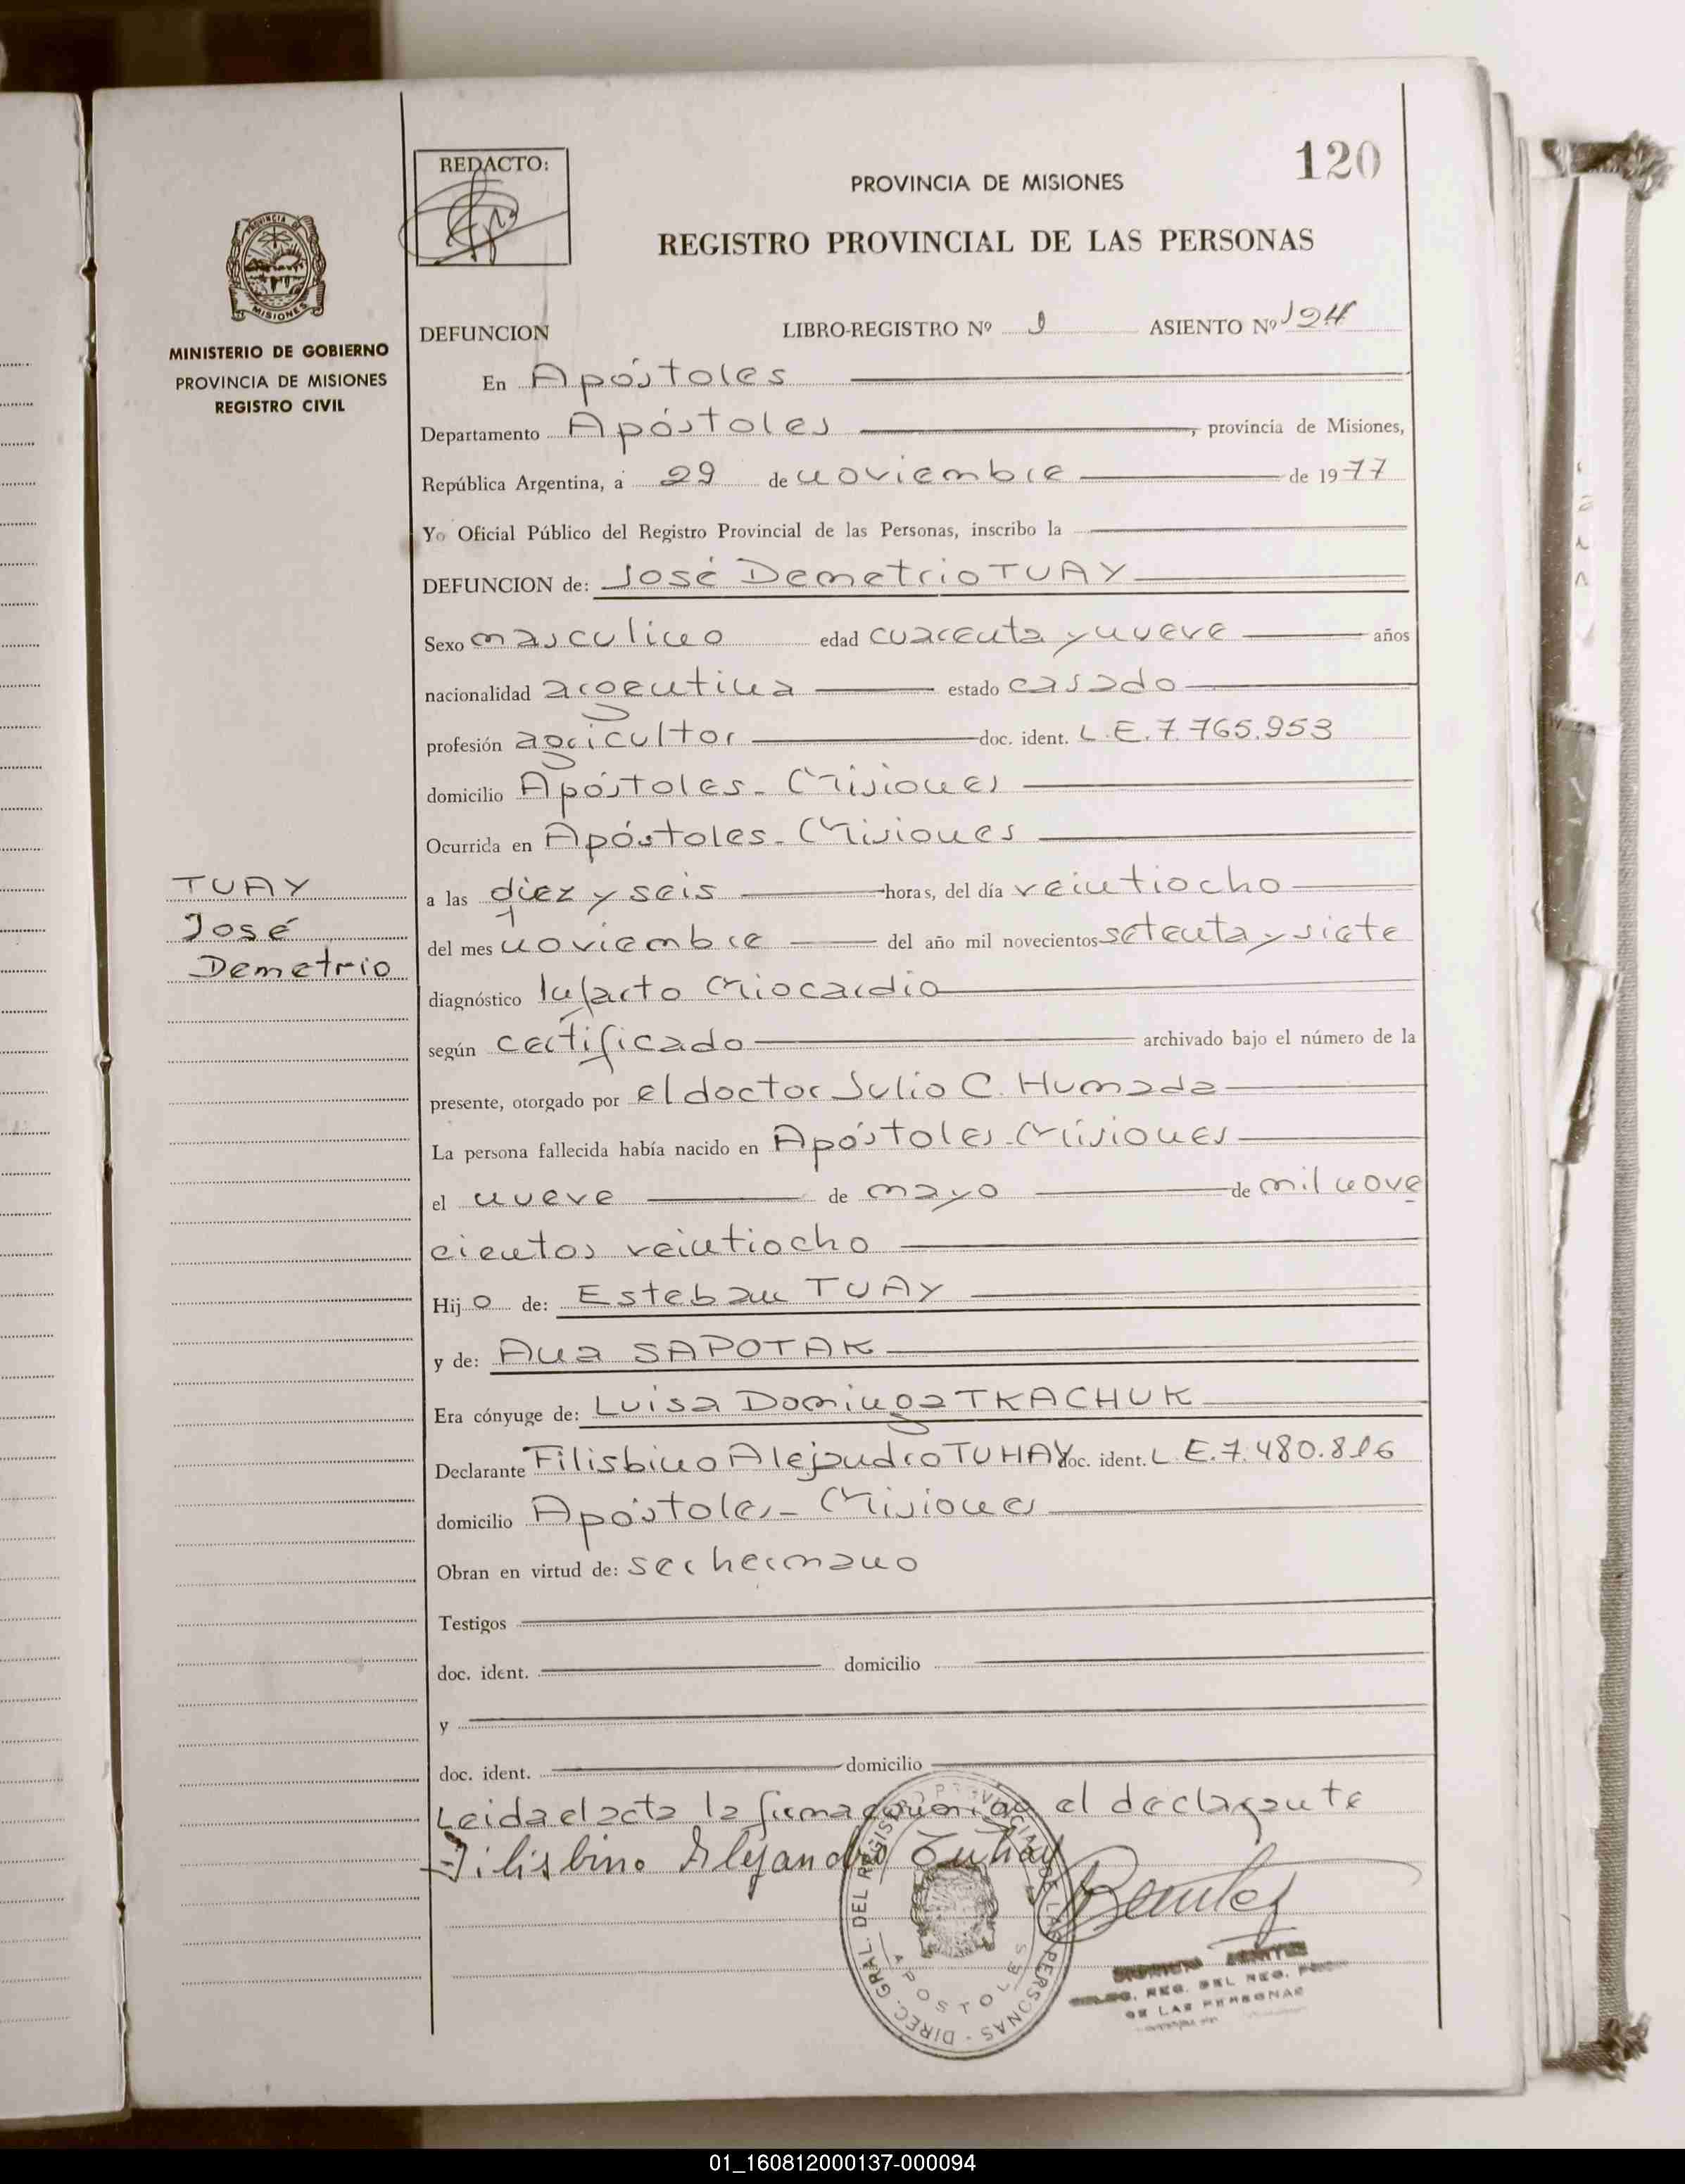 120
REDACTO:
PROVINCIA DE MISIONES
REGISTRO PROVINCIAL DE LAS PERSONAS
PROVINCIA DE MISIONES
MINISTERIO DE GOBIERNO
PROVINCIA DE MISIONES
REGISTRO CIVIL
DEFUNCION LIBRO-REGISTRO Nº 1 ASIENTO Nº 124
En Apóstoles
Departamento Apóstoles, provincia de Misiones,
República Argentina, a 29 de noviembre de 1977
Yo Oficial Público del Registro Provincial de las Personas, inscribo la
DEFUNCION de: José Demetrio TUAY
Sexo masculino edad cuarenta y nueve años
nacionalidad argentina estado casado
profesión agricultor doc. ident. L.E. 7.765.953
domicilio Apóstoles - Misiones
Ocurrida en Apóstoles - Misiones
TUAY
José
Demetrio
a las diez y seis horas, del día veintiocho
del mes noviembre del año mil novecientos setenta y siete
diagnóstico Infarto Miocardio
según certificado archivado bajo el número de la
presente, otorgado por el doctor Julio C. Humada
La persona fallecida había nacido en Apóstoles - Misiones
el nueve de mayo de mil nove
cientos veintiocho
Hijo de: Esteban TUAY
y de: Ana SAPOTAK
Era cónyuge de: Luisa Dominga TKACHUK
Declarante Filisbino Alejandro TUHAY doc. ident. L.E. 7.480.816
domicilio Apóstoles - Misiones
Obran en virtud de: ser hermano
Testigos
doc. ident. domicilio
y
doc. ident. domicilio
Leida el acta la firma conmigo el declarante
Filisbino Alejandro Tuhay
Benitez
DIREC. GRAL. DEL REGISTRO PROVINCIAL DE LAS PERSONAS
APOSTOLES
REG. DEL REG.
DE LAS PERSONAS
01_160812000137-000094